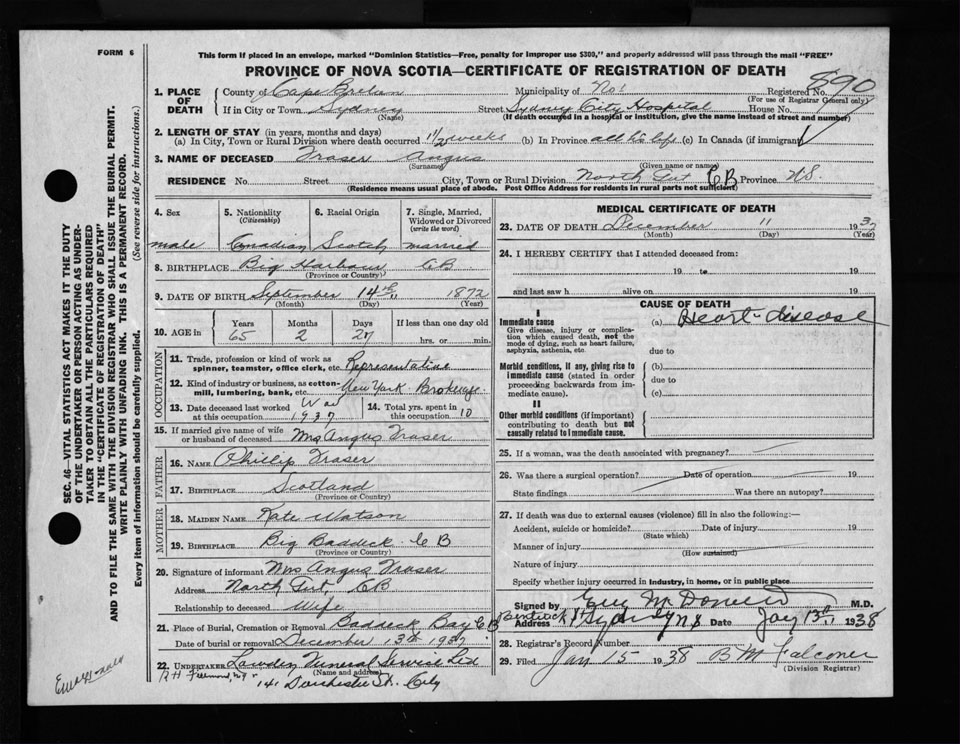 FORM 6
This form if placed in an envelope, marked "Dominion Statistics—Free, penalty for improper use $300," and properly addressed will pass through the mail "FREE"
PROVINCE OF NOVA SCOTIA—CERTIFICATE OF REGISTRATION OF DEATH
890
1. PLACE OF DEATH
County of Cape Breton Municipality of No. Registered No.
(For use of Registrar General only)
If in City or Town Sydney Street Sydney City Hospital House No.
(Name) (If death occurred in a hospital or institution, give the name instead of street and number)
2. LENGTH OF STAY (in years, months and days)
(a) In City, Town or Rural Division where death occurred 1 1/2 weeks (b) In Province all his life (c) In Canada (if immigrant)
3. NAME OF DECEASED Fraser Angus
(Surname) (Given name or names)
RESIDENCE No. Street City, Town or Rural Division North Gut CB Province N.S.
(Residence means usual place of abode. Post Office Address for residents in rural parts not sufficient)
4. Sex 5. Nationality 6. Racial Origin 7. Single, Married, Widowed or Divorced
(Citizenship) (write the word)
male Canadian Scotch married
8. BIRTHPLACE Big Harbour CB
(Province or Country)
9. DATE OF BIRTH September 14th 1872
(Month) (Day) (Year)
10. AGE in Years Months Days If less than one day old
65 2 27 hrs. or min.
OCCUPATION
11. Trade, profession or kind of work as spinner, teamster, office clerk, etc. Representative
12. Kind of industry or business, as cotton-mill, lumbering, bank, etc. New York Brokerage
13. Date deceased last worked at this occupation 1937
14. Total yrs. spent in this occupation 10
15. If married give name of wife or husband of deceased Mrs Angus Fraser
FATHER
16. NAME Phillip Fraser
17. BIRTHPLACE Scotland
(Province or Country)
MOTHER
18. MAIDEN NAME Kate Watson
19. BIRTHPLACE Big Baddeck CB
(Province or Country)
20. Signature of informant Mrs Angus Fraser
Address North Gut, CB
Relationship to deceased Wife
21. Place of Burial, Cremation or Removal Baddeck Bay CB
Date of burial or removal December 13th 1937
22. UNDERTAKER Funeral Service Ltd
(Name and address)
141 Dorchester St. City
MEDICAL CERTIFICATE OF DEATH
23. DATE OF DEATH December 11 1937
(Month) (Day) (Year)
24. I HEREBY CERTIFY that I attended deceased from:
19 to 19
and last saw h alive on 19
CAUSE OF DEATH
I
Immediate cause (a) Heart disease
Give disease, injury or complication which caused death, not the mode of dying, such as heart failure, asphyxia, asthenia, etc.
due to
Morbid conditions, if any, giving rise to immediate cause (stated in order proceeding backwards from immediate cause).
(b)
due to
(c)
II
Other morbid conditions (if important) contributing to death but not causally related to immediate cause.
25. If a woman, was the death associated with pregnancy?
26. Was there a surgical operation? Date of operation 19
State findings Was there an autopsy?
27. If death was due to external causes (violence) fill in also the following:—
Accident, suicide or homicide? Date of injury 19
(State which)
Manner of injury
(How sustained)
Nature of injury
Specify whether injury occurred in industry, in home, or in public place
Signed by M.D.
Address Sydney NS Date Jany 13th 1938
28. Registrar's Record Number
29. Filed Jan 15 1938 B M Falconer
(Division Registrar)
SEC. 46—VITAL STATISTICS ACT MAKES IT THE DUTY
OF THE UNDERTAKER OR PERSON ACTING AS UNDER-
TAKER TO OBTAIN ALL THE PARTICULARS REQUIRED
IN THE "CERTIFICATE OF REGISTRATION OF DEATH"
AND TO FILE THE SAME WITH THE DIVISION REGISTRAR WHO SHALL ISSUE THE BURIAL PERMIT.
WRITE PLAINLY WITH UNFADING INK. THIS IS A PERMANENT RECORD.
Every item of information should be carefully supplied. (See reverse side for instructions.)